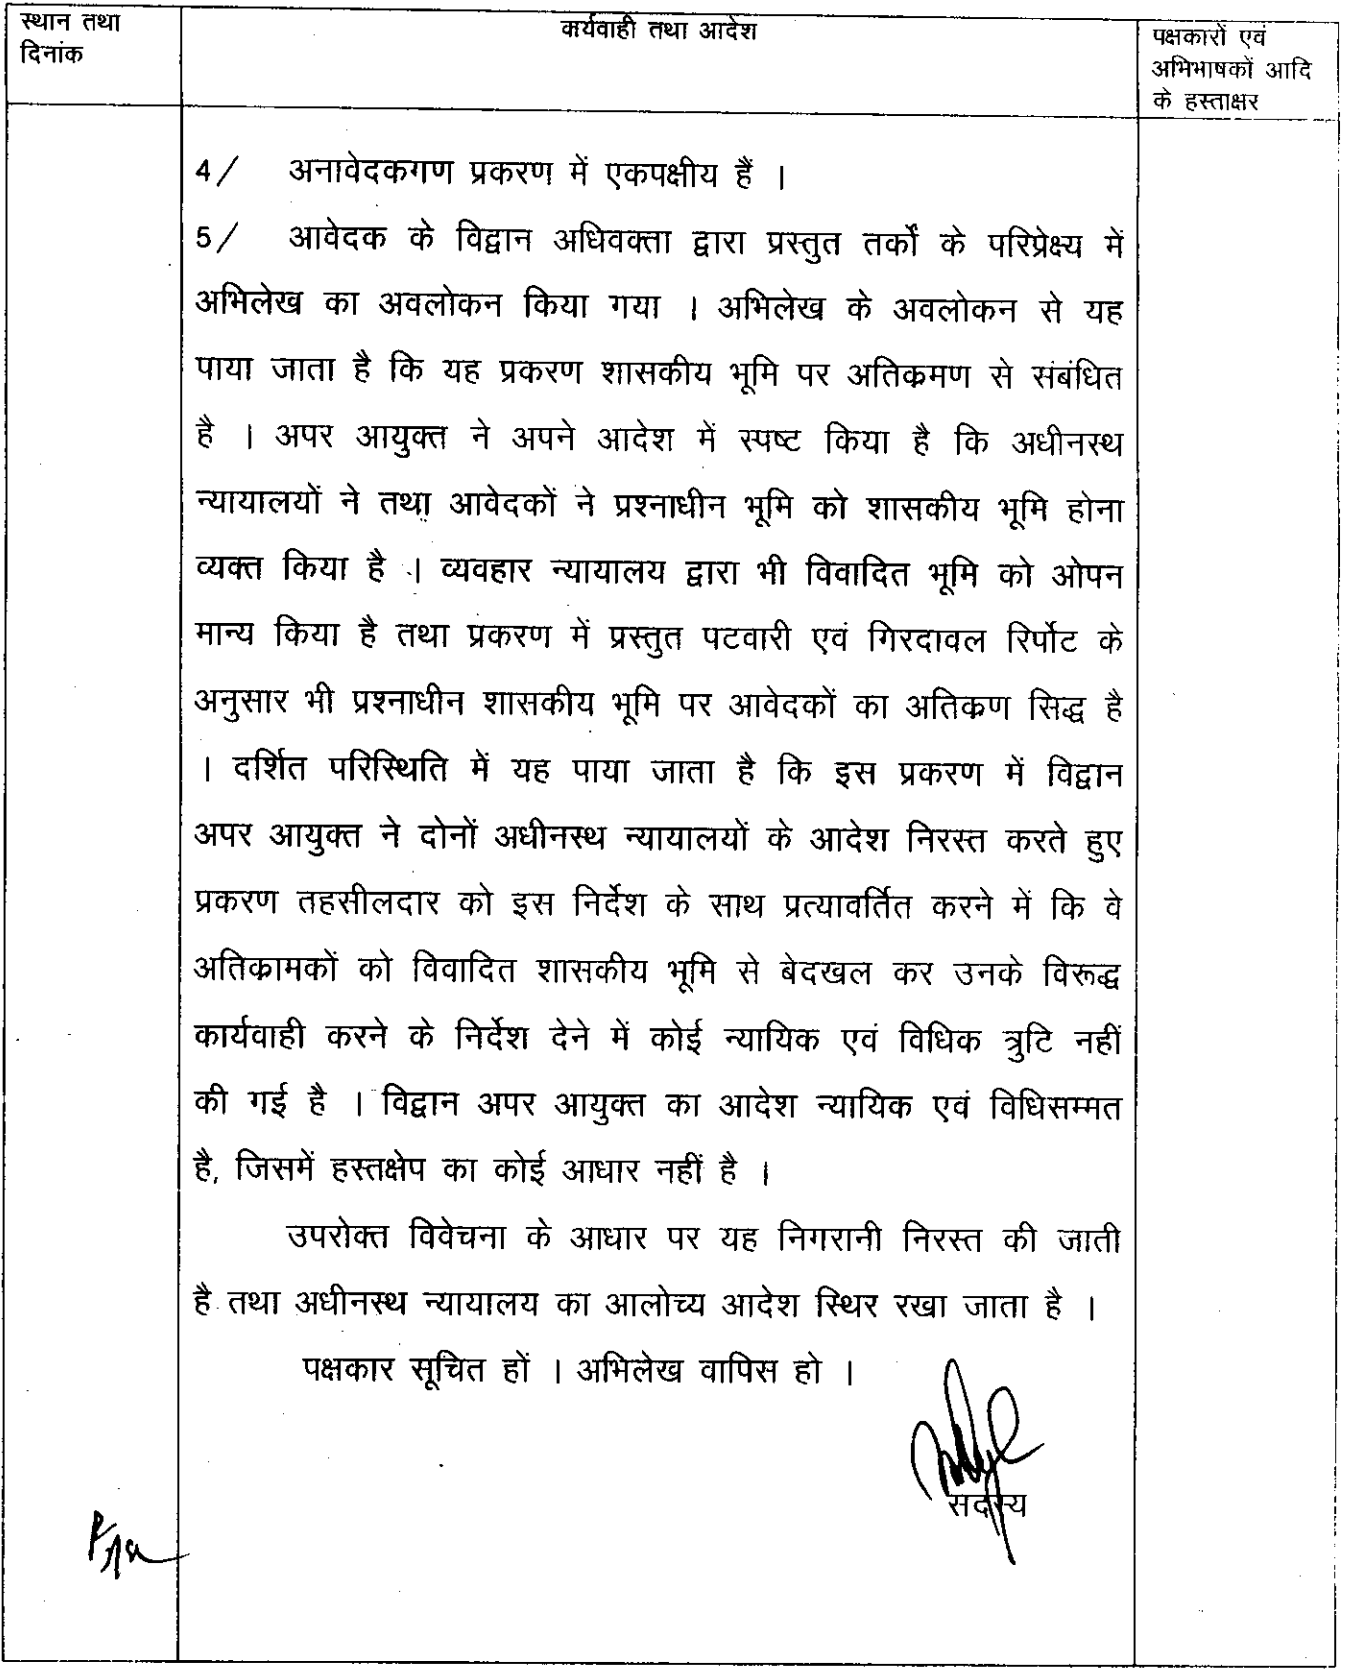 स्थान तथा
दिनांक
कार्यवाही तथा आदेश
पक्षकारों एवं
अभिभाषकों आदि
के हस्ताक्षर
4/ अनावेदकगण प्रकरण में एकपक्षीय हैं ।
5/ आवेदक के विद्वान अधिवक्ता द्वारा प्रस्तुत तर्कों के परिप्रेक्ष्य में
अभिलेख का अवलोकन किया गया । अभिलेख के अवलोकन से यह
पाया जाता है कि यह प्रकरण शासकीय भूमि पर अतिक्रमण से संबंधित
है । अपर आयुक्त ने अपने आदेश में स्पष्ट किया है कि अधीनस्थ
न्यायालयों ने तथा आवेदकों ने प्रश्नाधीन भूमि को शासकीय भूमि होना
व्यक्त किया है । व्यवहार न्यायालय द्वारा भी विवादित भूमि को ओपन
मान्य किया है तथा प्रकरण में प्रस्तुत पटवारी एवं गिरदावल रिर्पोट के
अनुसार भी प्रश्नाधीन शासकीय भूमि पर आवेदकों का अतिक्रण सिद्ध है
। दर्शित परिस्थिति में यह पाया जाता है कि इस प्रकरण में विद्वान
अपर आयुक्त ने दोनों अधीनस्थ न्यायालयों के आदेश निरस्त करते हुए
प्रकरण तहसीलदार को इस निर्देश के साथ प्रत्यावर्तित करने में कि वे
अतिक्रामकों को विवादित शासकीय भूमि से बेदखल कर उनके विरूद्ध
कार्यवाही करने के निर्देश देने में कोई न्यायिक एवं विधिक त्रुटि नहीं
की गई है । विद्वान अपर आयुक्त का आदेश न्यायिक एवं विधिसम्मत
है, जिसमें हस्तक्षेप का कोई आधार नहीं है ।
उपरोक्त विवेचना के आधार पर यह निगरानी निरस्त की जाती
है तथा अधीनस्थ न्यायालय का आलोच्य आदेश स्थिर रखा जाता है ।
पक्षकार सूचित हों । अभिलेख वापिस हो ।
सदस्य